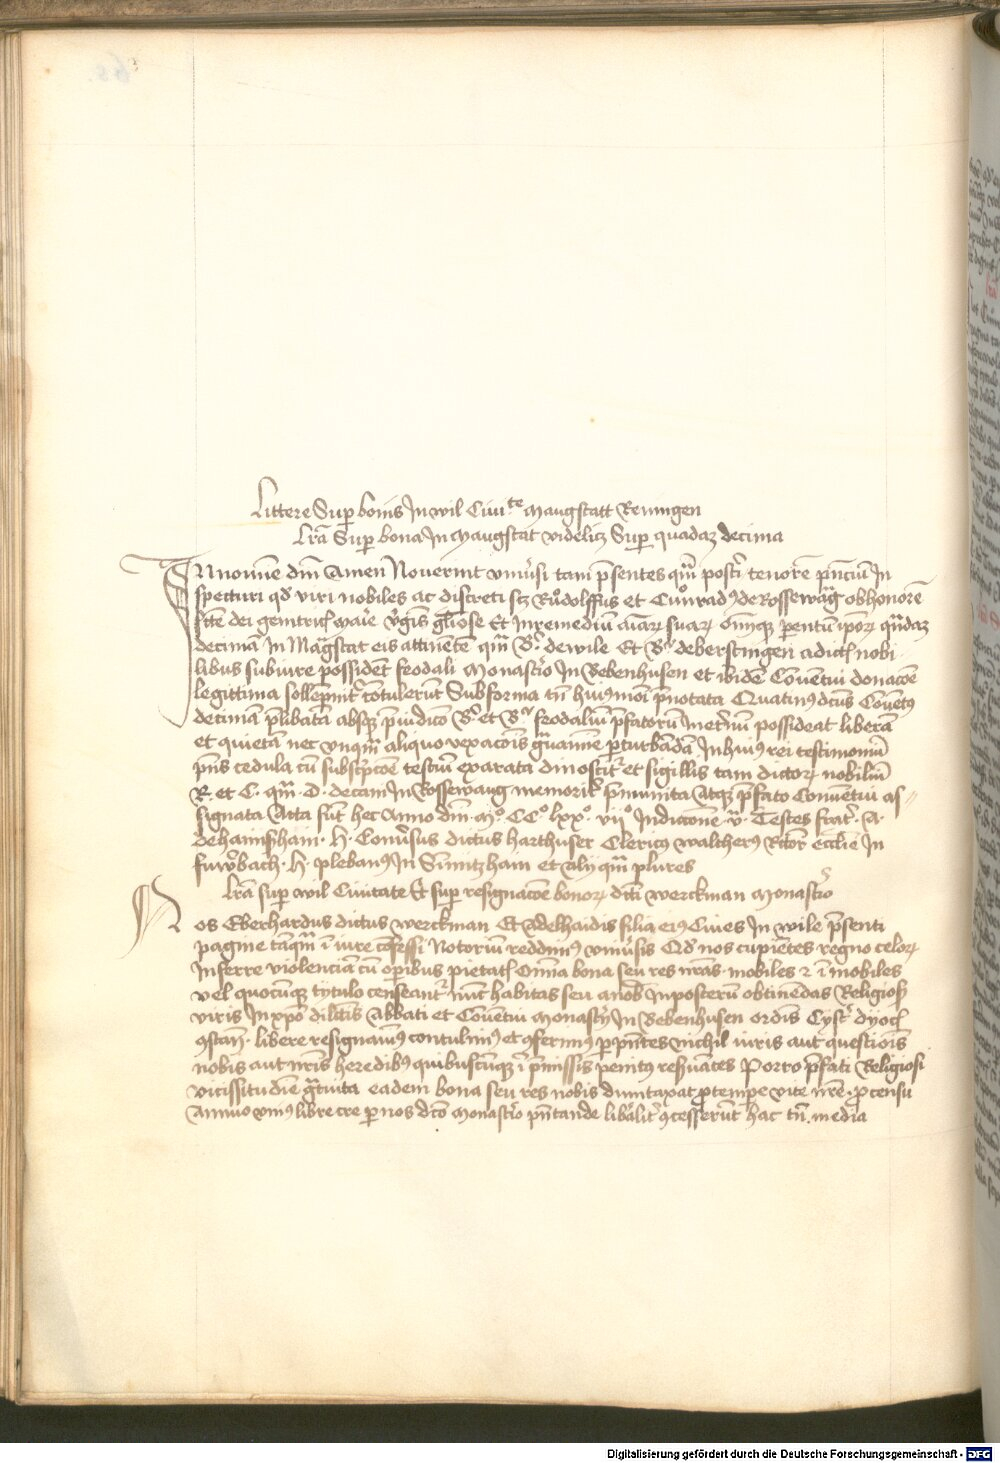 Littere Sup bonis In wil Ciuite Maugstatt Renningen
Lra Sup bona In Maugstat videlicz Sup quadaz decima
In noīe dnī Amen Noverint vniūsi tam p̄sentes qm̄ post'i tenorē p̄ncīu In
specturi qd viri nobiles ac discreti scz Růdolffus et Cůnrad9 de Rossewag ob honorē
scē dei genitricꝭ marie v'ginis gliose Et In remediū aīaꝝ suaꝝ om̄iqꝫ parentū ipoꝝ quādaz
decimā In Magstat eis attinētē qm̄ B. de wile Et B. de berstingen a dictꝭ nobi
libus sub iure possidēt feodali Monast'io In Bebenhusen et ibidē Cōuētui donacōe
legittima sollepnit' cōtulerūt Sub forma tn̄ huiusmōi p̄notata Quatinus dcūs Cōuēt9
decimā p̄libatā absqꝫ p̄iudicō B. et B. feodaliū p̄fatorū In etnū possideat liberā
et quietā nec vnqm̄ aliquo vexacōis guamīe pturbādā In hui9 rei testimoniū
p̄ns cedula cū subscp̄coē testiū exarata dinoscit' et sigillis tam dictoꝝ nobiliū
R. et C. qm̄ D. decani In Rossewang memorit' p̄munita Atqꝫ p̄fato Conuentui as
signata Acta sūt hec Anno dnī Mº. CCº lxxº. vijº Indictione vᵃ. Testes scatꝭ. A.
de haimshain. H. Conu'sus dictus harthuser Clericus walther9 Rctor ecclie In
furbach. H. plebanus In Simitzhain et alij qm̄ plures
Lra sup wil Ciuitate Et sup resignacōe bonoꝝ dicti werckman Monast'io
Nos Eberhardus dictus werckman Et Adelhaidis filia ei9 Ciues In wile p̄senti
pagine tāqm̄ ī iure cōfessi Notoriū reddim9 vniū'sis Qd nos cupiētes regno celoꝝ
Inferre violenciā cū opibus pietatꝭ Omīa bona seu res nrās mobiles ⁊ ī mobiles
vel quocūqꝫ tytulo censeant' nūc habitas seu a nob Inposterū obtinēdas Religiosꝭ
viris In xpo dilctis Abbati et Cōuētui Monast'ij In Bebenhusen ordīs Cyst' dyocꝭ
9stan. libere resignauim9 contulim9 et 9ferim9 p p̄ntes nichil iuris aut questiōis
nobis aut nrīs heredib9 quibuscūqꝫ ī p̄missis penit9 res'uātes Porro p̄fati Religiosi
vicissitudiē gtuita eadem bona seu res nobis dumtaxat p tempe vite nrē. p censu
Annuo vni9 libre cere p nos dicō Monast'io p̄ntande libalit' 9cesserūt hac tn̄ media
Digitalisierung gefördert durch die Deutsche Forschungsgemeinschaft - DFG